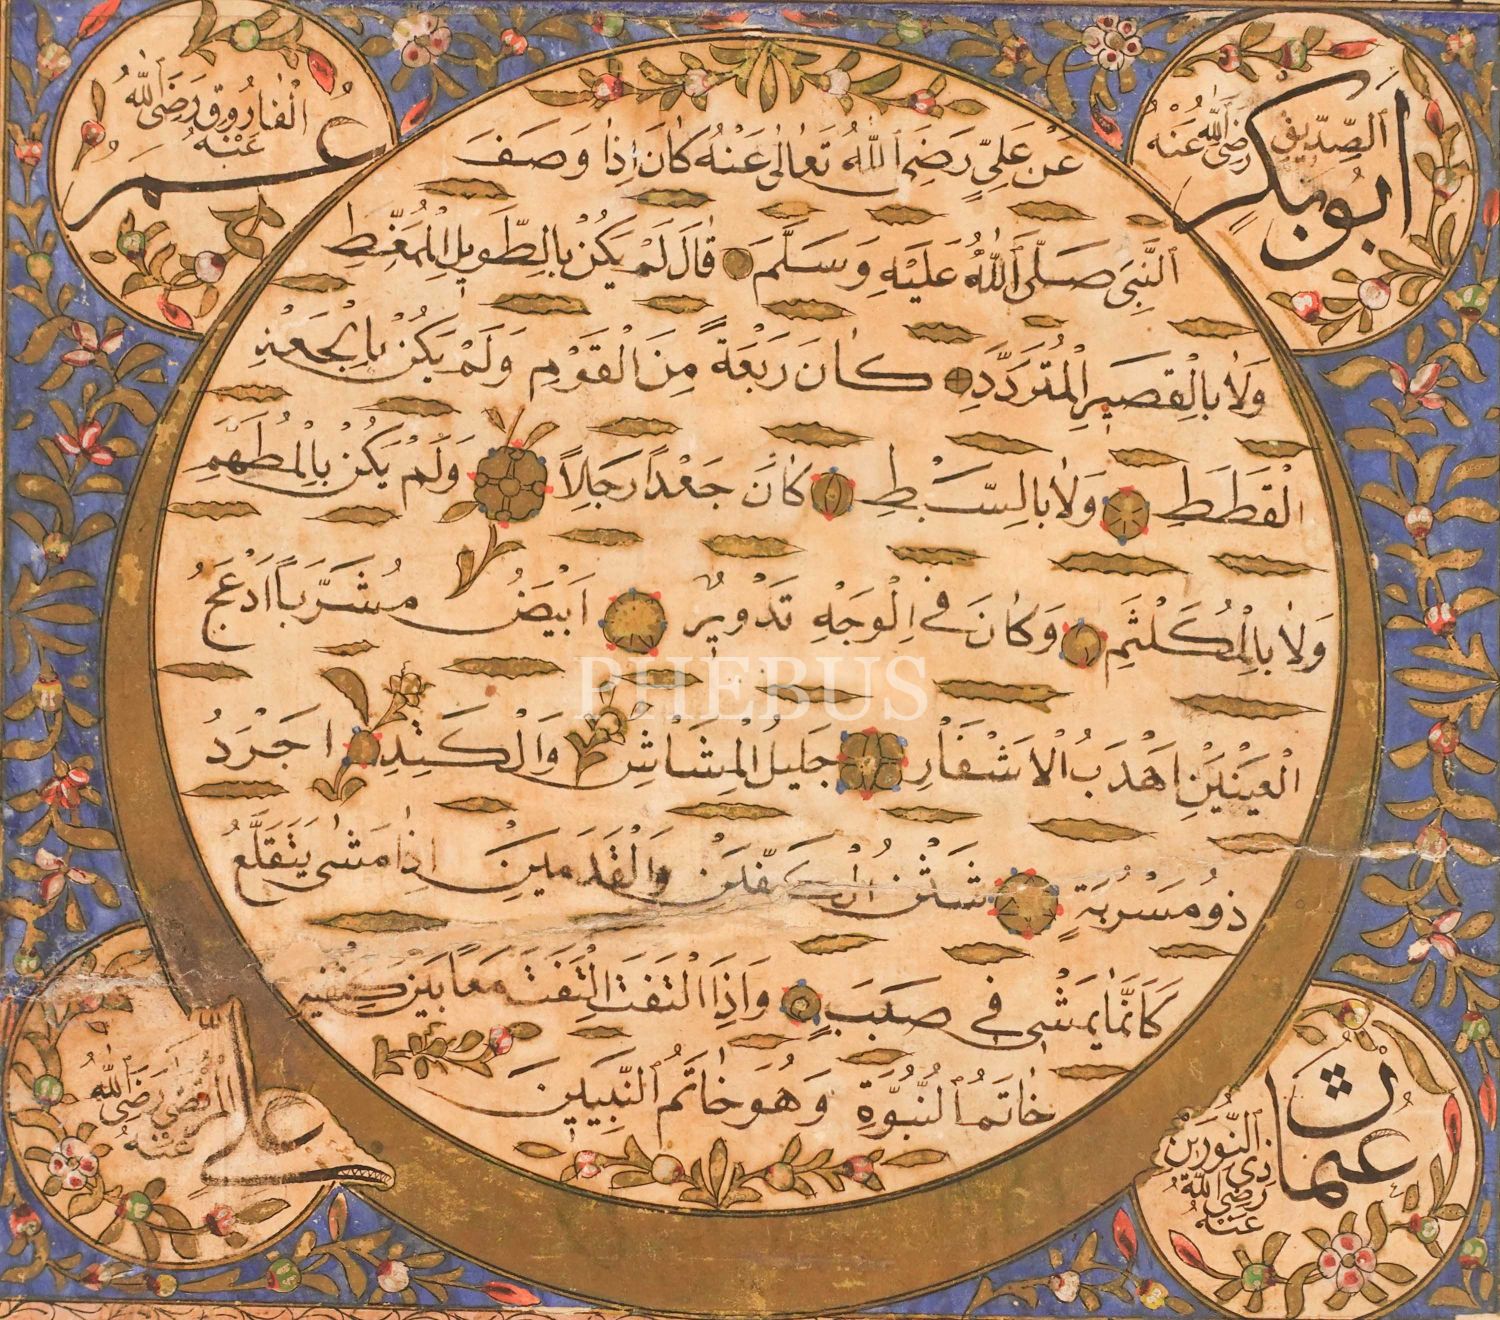 ابو بكر الصديق رضي الله عنه
عمر الفاروق رضي الله عنه
عَنْ عَلِيٍّ رَضِيَ اللّٰهُ تَعَالٰى عَنْهُ كَانَ اِذَا وَصَفَ
النَّبِيَّ صَلَّى اللّٰهُ عَلَيْهِ وَسَلَّمَ قَالَ لَمْ يَكُنْ بِالطَّوِيلِ الْمُمَّغِطِ
وَلَا بِالْقَصِيرِ الْمُتَرَدِّدِ كَانَ رَبْعَةً مِنَ الْقَوْمِ وَلَمْ يَكُنْ بِالْجَعْدِ
الْقَطَطِ وَلَا بِالسَّبْطِ كَانَ جَعْدًا رَجِلًا وَلَمْ يَكُنْ بِالْمُطَهَّمِ
وَلَا بِالْمُكَلْثَمِ وَكَانَ فِي الْوَجْهِ تَدْوِيرٌ اَبْيَضُ مُشَرَّبًا اَدْعَجُ
الْعَيْنَيْنِ اَهْدَبُ الْاَشْفَارِ جَلِيلُ الْمُشَاشِ وَالْكَتَدِ اَجْرَدُ
ذُو مَسْرُبَةٍ شَثْنُ الْكَفَّيْنِ وَالْقَدَمَيْنِ اِذَا مَشٰى يَتَقَلَّعُ
كَاَنَّمَا يَمْشِي فِي صَبَبٍ وَاِذَا الْتَفَتَ الْتَفَتَ مَعًا بَيْنَ كَتِفَيْهِ
خَاتَمُ النُّبُوَّةِ وَهُوَ خَاتَمُ النَّبِيِّينَ
عثمان ذي النورين رضي الله عنه
علي المرتضى رضي الله عنه
PHEBUS